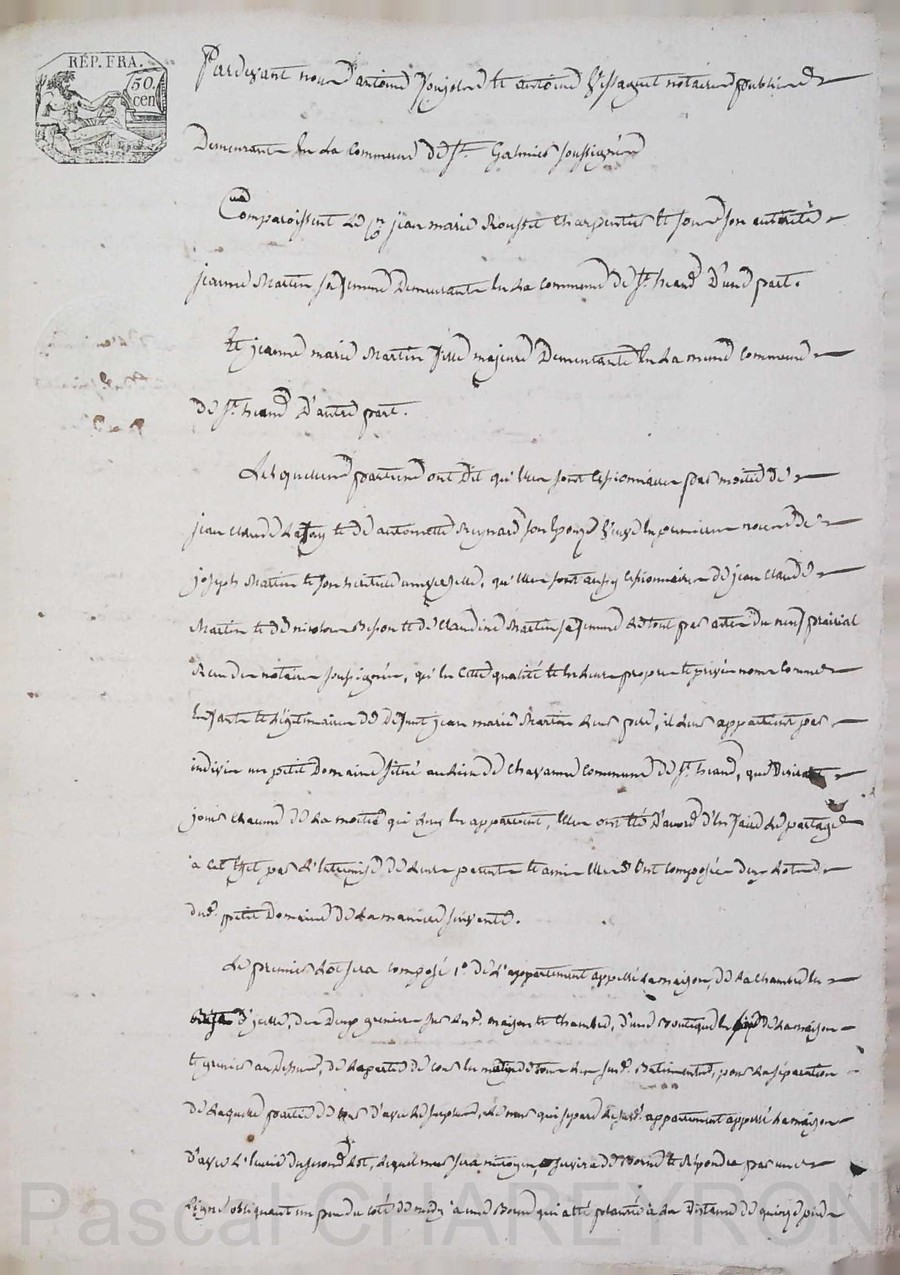 RÉP. FRA.
50.
cen
Pardevant nous antoine et antoine notaires publics
Demeurants En La Commune De St. Galmier soussignés
Comparoissent Le Cn. jean marie Roussel Charpentier et sous son autorité
jeanne Martin sa femme Demeurants En La Commune De St. heand D'une part.
Et jeanne marie Martin fille majeure Demeurante En La meme Commune
De St. heand D'autre part.
Lesquelles parties ont Dit qu'elles sont Cessionnaires par moitié de
jean Claude et de antoinette Reynard son Epouse Veuve En premieres noces de
joseph Martin et son heritiere universelle, qu'elles sont aussy Cessionnaires de jean Claude
Martin et de nicolas Besson et de Claudine Martin sa femme Le tout par actes du neuf prairial
Reçu des notaires soussignés, qu'en Cette qualité et En Leurs propres et privés noms Comme
Enfants et Légitimaires de Defunt jean marie Martin Leur père, il Leur appartient par
indivis un petit Domaine situé au Lieu de Chavanne Commune De St. heand, que Desirant
jouir chacune de La moitié qui Leur En appartient, Elles ont été D'accord D'En faire Le partage
à Cet Effet par L'Entremise de Leurs parents et amis Elles Ont Composé deux Lots de
dud. petit Domaine De La maniere suivante.
Le premier Lot sera Composé 1° de L'appartement appellé La maison, de La Chambre En
D'icelle, des Deux greniers sur Lesd. maison et Chambre, d'une Boutique de La maison
et grenier au Dessus, de La partie de Cour En des susd. Batiments, pour La séparation
De Laquelle partie de D'avec Le surplus, Le mur qui separe Le susd. appartement appellé La maison
D'avec L'Ecurie du second Lot, Lequel mur sera mitoyen, servira de Borne et Répondra par une
Ligne obliquant un peu du côté de midy à une Borne qui a été plantée à La Distance de quinze pieds
Pascal CHAREYRON